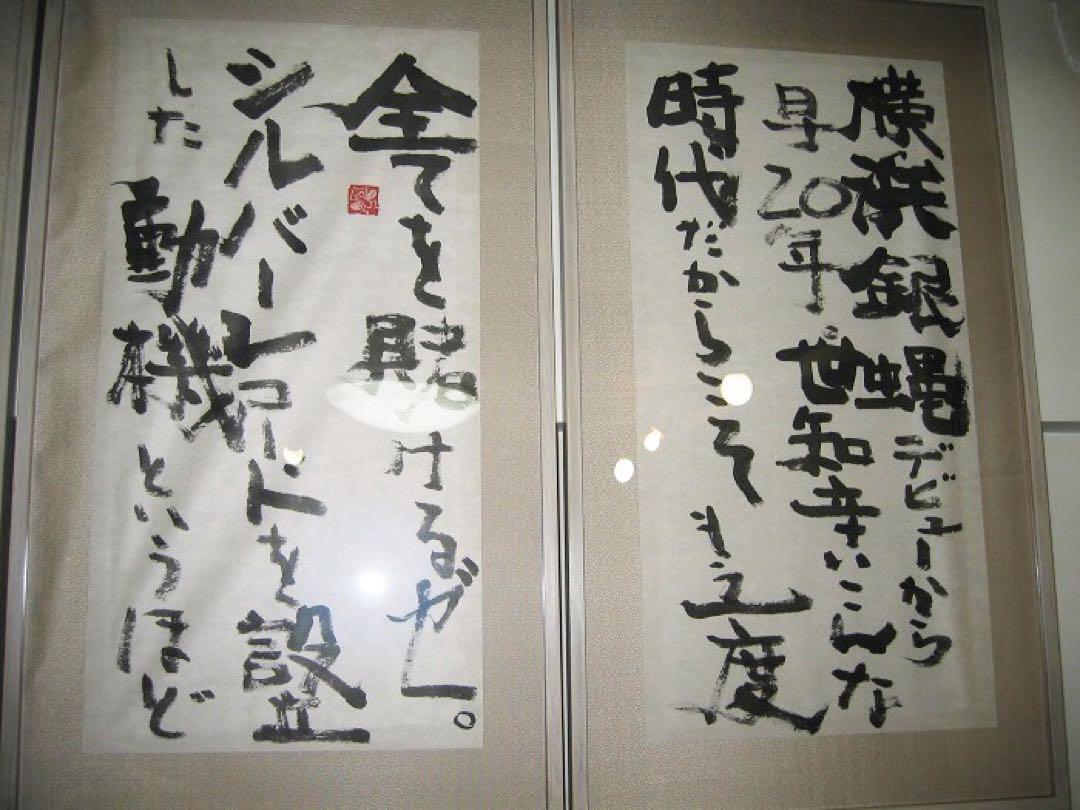 横浜銀蝿デビューから
早20年。世知辛いこんな
時代だからこそもう一度
全てを賭けるぜー。
シルバーレコードを設立
した動機というほど